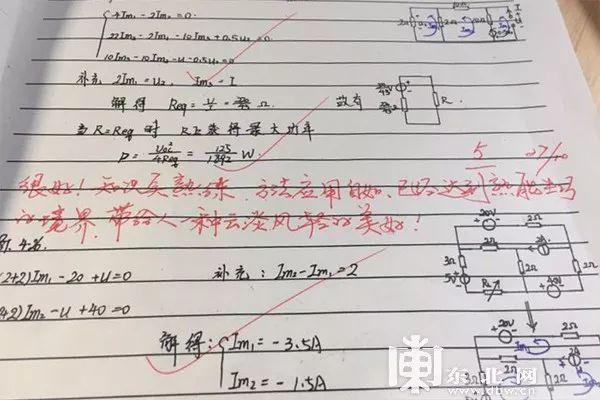 4Im₁ - 2Im₂ = 0.
22Im₂ - 2Im₁ - 10Im₃ + 0.5u₂ = 0.
10Im₃ - 10Im₂ - u - 0.5u₂ = 0.
补充 2Im₁ = u₂, Im₃ = I
解得 Req = Ω. 故有
当 R = Req 时 R上获得最大功率
P = Uoc²/4Req = 125/1392 W.
5 27/10
很好!知识点熟练、方法应用自如、已经达到熟能生巧
的境界,带给人一种云淡风轻的美好!
4-26.
(2+2)Im₁ - 20 + u = 0 补充:Im₂ - Im₁ = 2
+2)Im₂ - u + 40 = 0
解得: Im₁ = -3.5A
Im₂ = -1.5A
R
20V 2Ω
2Ω 2A
3Ω 2Ω 2Ω
5V 40V
20V 2Ω
2Ω 2A
東北网
www.dbw.cn